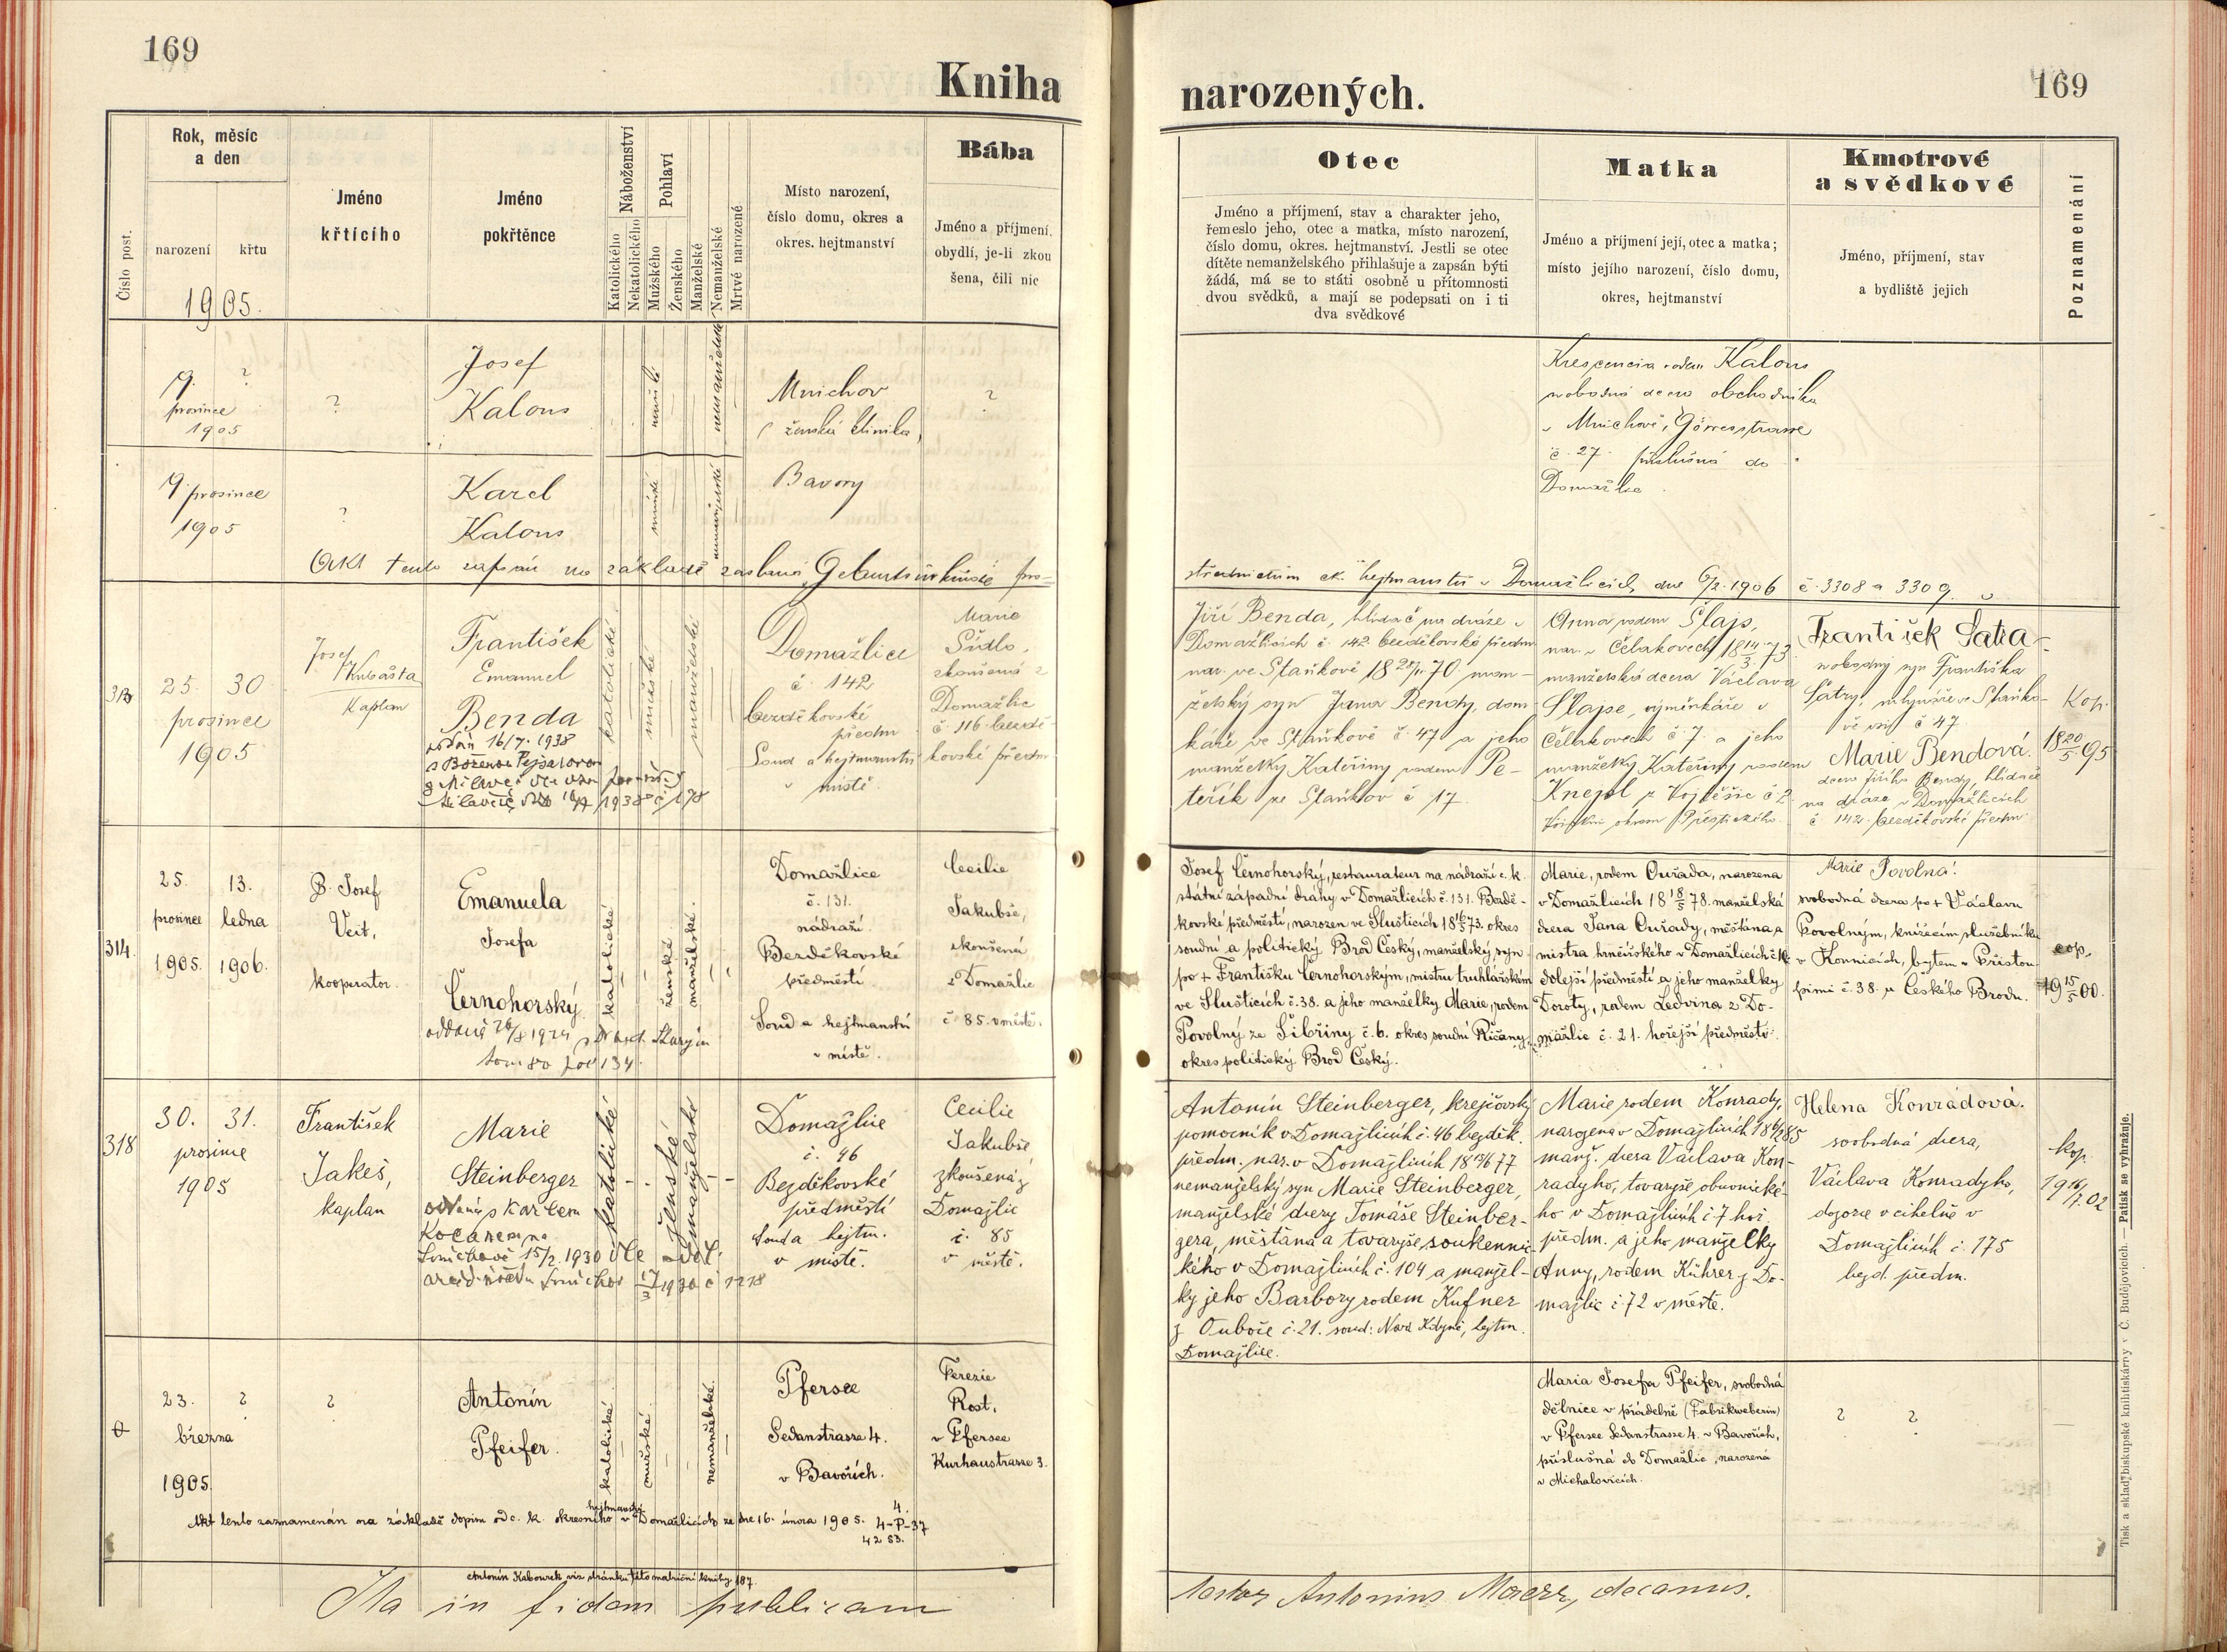 169
Kniha
Rok, měsíc
a den
Číslo post.
narození
křtu
1905.
Jméno
křtícího
Jméno
pokřtěnce
Náboženství
Katolického
Nekatolického
Pohlaví
Mužského
Ženského
Manželské
Nemanželské
Mrtvé narozené
Místo narození,
číslo domu, okres a
okres. hejtmanství
Bába
Jméno a příjmení,
obydlí, je-li zkou
šena, čili nic
9. ?
prosince
1905
?
Josef
Kalous
mužské
nemanželské
Mnichov
(ženská klinika)
?
9 prosince
1905
?
Karel
Kalous
mužské
nemanželské
Bavory
Akt tento zapsán na základě zaslané Geburtsurkunde pro-
313
25. 30
prosince
1905
Josef
Kubašta
Kaplan
František
Emanuel
Benda
katolické
mužské
manželské
Domažlice
č. 142
bezděkovské
předm
Soud a hejtmanství
v místě.
Marie
Sidlo,
zkoušená z
Domažlic
č. 116 bezdě-
kovské předm
314.
25. 13.
prosince ledna
1905. 1906.
P. Josef
Veit,
kooperator.
Emanuela
Josefa
Černohorský
katolické
ženské
manželské.
Domažlice
č. 131.
nádraží.
Bezděkovské
předměstí
Soud a hejtmanství
v místě.
Cecilie
Jakubše,
zkoušená
z Domažlic
č 85. v městě.
318
30. 31.
prosince
1905
František
Jakeš,
kaplan
Marie
Steinberger
oddána s Karlem
Kocanem na
Smíchově 15/2. 1930
katolické
ženské
manželské
Domažlice
č. 46
Bezděkovské
předměstí
Soud a hejtm.
v místě.
Cecilie
Jakubše
zkoušená z
Domažlic
č. 85
v městě.
23. ?
března
1905.
?
Antonín
Pfeifer.
katolické
mužské.
nemanželské.
Pfersee
Sedanstrasse 4.
v Bavořích.
Terezie
Rost,
v Pfersee
Kurhaustrasse 3.
Akt tento zaznamenán na základě dopisu od c. k. okresního hejtmanství v Domažlicích ze dne 16. února 1905. 4-P-37
Antonín Kabourek viz stránku této matriční knihy 187.
Ita in fidem publicam
169
narozených.
Otec
Jméno a příjmení, stav a charakter jeho,
řemeslo jeho, otec a matka, místo narození,
číslo domu, okres. hejtmanství. Jestli se otec
dítěte nemanželského přihlašuje a zapsán býti
žádá, má se to státi osobně u přítomnosti
dvou svědků, a mají se podepsati on i ti
dva svědkové
Matka
Jméno a příjmení její, otec a matka;
místo jejího narození, číslo domu,
okres, hejtmanství
Kmotrové
a svědkové
Jméno, příjmení, stav
a bydliště jejich
Poznamenání
Krescencia rodem Kalous
svobodná dcera obchodníka
v Mnichově, Görresstrasse
č. 27. příslušná do
Domažlic
střednictvím ck. hejtmanství v Domažlicích dne 6/2. 1906 č. 3308 a 3309.
Jiří Benda, hlídač na dráze v
Domažlicích č 142 bezděkovské předm
nar. ve Staňkově 70 man-
želský syn Jana Bendy, dom
káře ve Staňkově č. 47 a jeho
manželky Kateřiny rodem Pe-
teřík ze Staňkov č 17.
Anna rodem Šlajs,
nar. v Čelakovech 18 14/3 73
manželská dcera Václava
Šlajse, výměnkáře v
Čelakovech č. 7. a jeho
manželky Kateřiny rodem
František Šatra
svobodný syn Františka
Šatry, mlynáře ve Staňko-
vě č 47
Marie Bendová.
dcera Jiřího Bendy, hlídače
na dráze v Domažlicích
č 142. bezděkovské předm
Kop.
18 20/5 95
Josef Černohorský, restaurateur na nádraží c. k.
státní západní dráhy v Domažlicích č. 131. Bezdě-
kovské předměstí, narozen ve Sluštících 73. okres
soudní a politický Brod Český, manželský syn
po + Františku Černohorským, mistru truhlářském
ve Sluštících č. 38. a jeho manželky Marie, rodem
Povolný ze Šibřiny č. 6. okres soudní Říčany,
okres politický Brod Český.
Marie, rodem Ouřada, narozena
v Domažlicích 18 18/5 78. manželská
dcera Jana Ouřady, měšťana a
mistra hrnčířského v Domažlicích
dolejší předměstí a jeho manželky
Doroty, rodem Ledvina z Do-
mažlic č. 21. hořejší předměstí.
Marie Povolná!
svobodná dcera po + Václavu
Povolným, knížecím služebníku
v Konnicích, bytem v Přistou
pimi č. 38. u Českého Brodu.
cop.
19 15/5 00.
Antonín Steinberger, krejčovský
pomocník v Domažlicích č. 46 bezděk.
předm. nar. v Domažlicích 18 13/6 77
nemanželský syn Marie Steinberger,
manželské dcery Tomáše Steinber-
gera, měšťana a tovaryše soukennic-
kého v Domažlicích č. 104 a manžel-
ky jeho Barbory rodem Kufner
z Ouboče č. 21. soud: Nová Kdyně, hejtm.
Domažlice.
Marie rodem Konrady,
narozena v Domažlicích
manž. dcera Václava Kon-
radyho, tovaryše obuvnické-
ho v Domažlicích č 7 hoř.
předm. a jeho manželky
Anny, rodem Kührer z Do-
mažlic č. 72 v městě.
Helena Konrádová.
svobodná dcera,
Václava Konradyho,
dozorce v cihelně v
Domažlicích č. 175
bezd. předm.
kop.
19 16/7. 02
Maria Josefa Pfeifer, svobodná
dělnice v přádelně (Fabrikweberin)
v Pfersee Sedanstrasse 4. v Bavořích,
příslušná do Domažlic, narozená
v Michalovicích.
? ?
Antonius decanus.
Tisk a sklad biskupské knihtiskárny v Č. Budějovicích. — Patisk se vyhražuje.